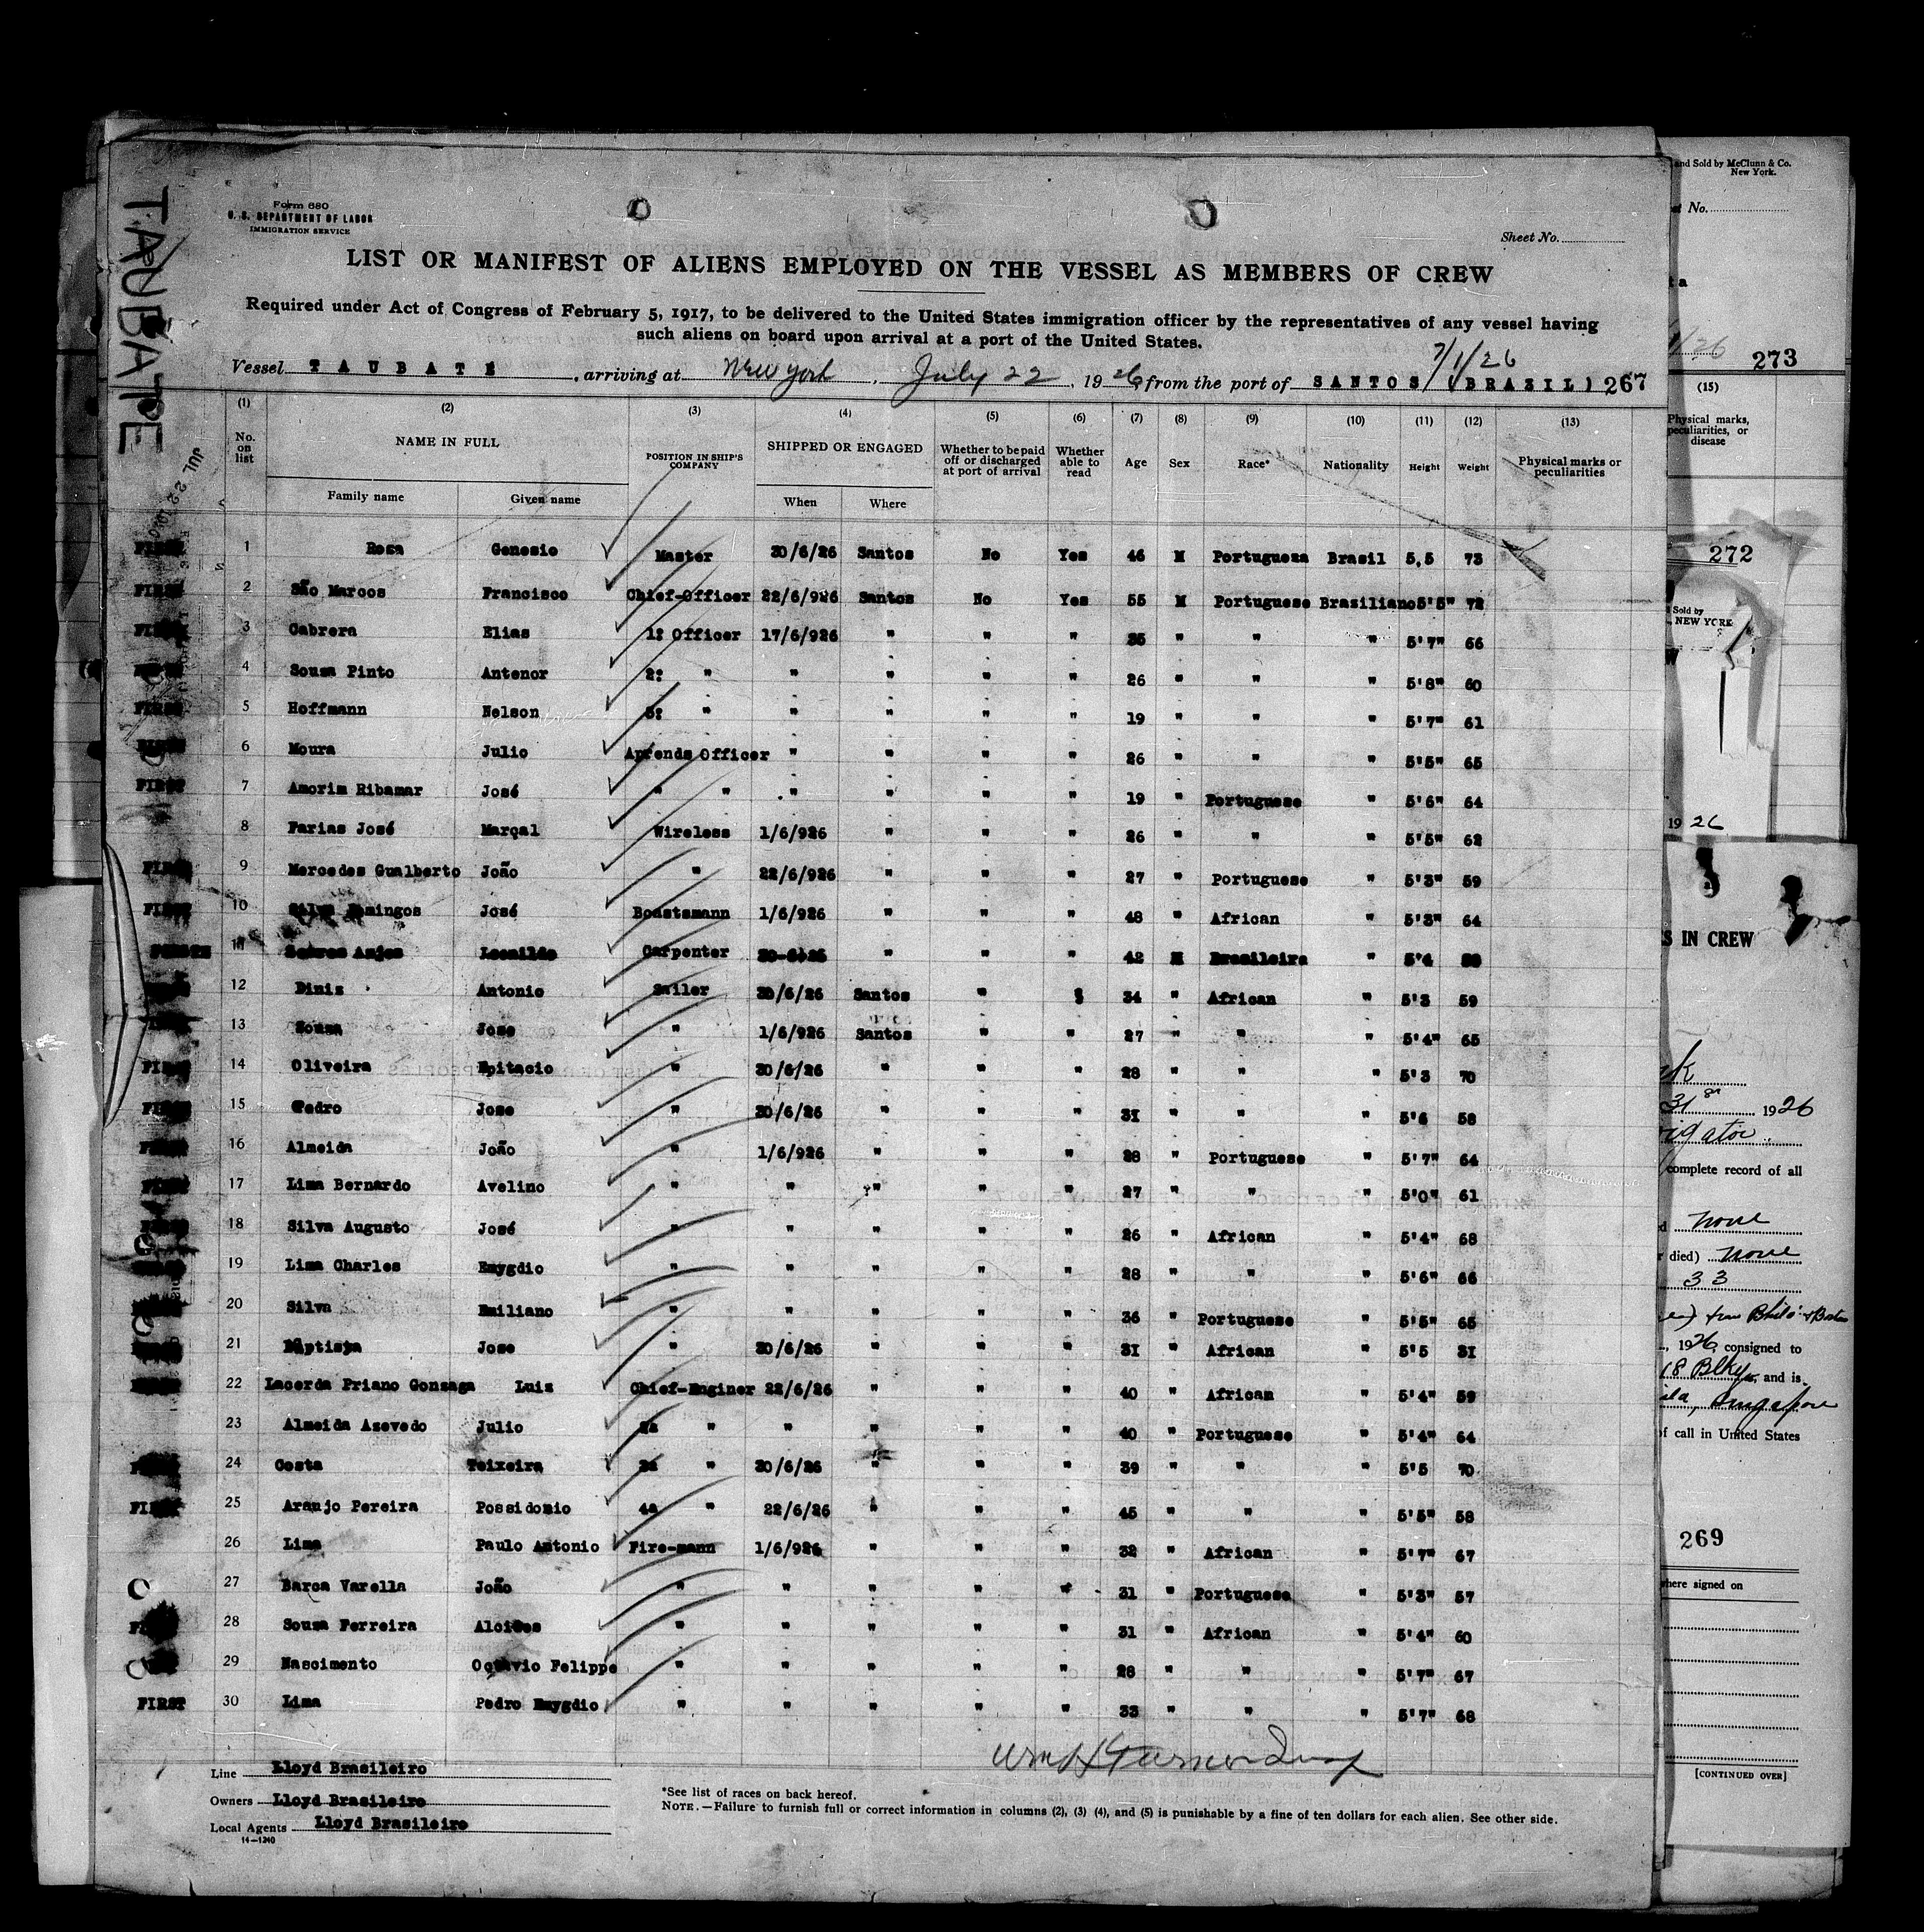 TAUBATE
Form 680
U. S. DEPARTMENT OF LABOR
IMMIGRATION SERVICE
Sheet No.
LIST OR MANIFEST OF ALIENS EMPLOYED ON THE VESSEL AS MEMBERS OF CREW
Required under Act of Congress of February 5, 1917, to be delivered to the United States immigration officer by the representatives of any vessel having
such aliens on board upon arrival at a port of the United States.
7/1/26
Vessel TAUBATE, arriving at New York, July 22, 1926, from the port of SANTOS (BRAZIL) 267
(1) (2) (3) (4) (5) (6) (7) (8) (9) (10) (11) (12) (13)
No. on list NAME IN FULL POSITION IN SHIP'S COMPANY SHIPPED OR ENGAGED Whether to be paid off or discharged at port of arrival Whether able to read Age Sex Race* Nationality Height Weight Physical marks or peculiarities
Family name Given name When Where
JUL 22
FIRST 1 Rosa Genesio Master 30/6/26 Santos No Yes 46 M Portuguesa Brasil 5,5 73
FIRST 2 São Marcos Francisco Chief-Officer 22/6/926 Santos No Yes 55 M Portuguese Brasiliano 5'5" 72
FIRST 3 Cabrera Elias 1º Officer 17/6/926 " " " 35 " " " 5'7" 66
4 Sousa Pinto Antenor 2º " " " " " 26 " " " 5'8" 60
FIRST 5 Hoffmann Nelson " " " " " 19 " " " 5'7" 61
6 Moura Julio Aprends Officer " " " " 26 " " " 5'5" 65
FIRST 7 Amorim Ribamar José " " " " " " 19 " Portuguese " 5'6" 64
8 Farias José Marçal Wireless 1/6/926 " " " 26 " " " 5'5" 62
FIRST 9 Mercedes Gualberto João " 22/6/926 " " " 27 " Portuguese " 5'3" 59
FIRST 10 Silva Domingos José Boastsmann 1/6/926 " " " 48 " African " 5'3" 64
11 Soares Anjos Leonilde Carpenter " " " 42 M Brasileira " 5'4
12 Diniz Antonio Sailer 30/6/26 Santos " 34 " African " 5'3 59
13 Sousa Jose " 1/6/926 Santos " " 27 " " " 5'4" 65
FIRST 14 Oliveira Epitacio " 30/6/26 " " " 28 " " " 5'3 70
FIRST 15 Pedro Jose " 30/6/26 " " " 31 " " " 5'6 58
FIRST 16 Almeida João " 1/6/926 " " " 28 " Portuguese " 5'7" 64
FIRST 17 Lima Bernardo Avelino " " " " " 27 " " " 5'0" 61
18 Silva Augusto José " " " " " 26 " African " 5'4" 68
19 Lima Charles Emygdio " " " " " 28 " " " 5'6" 66
20 Silva Emiliano " " " " " 36 " Portuguese " 5'5" 65
21 Baptista Jose " 30/6/26 " " " 31 " African " 5'5 31
22 Lacerda Priano Gonzaga Luiz Chief-Enginer 22/6/26 " " " 40 " African " 5'4" 59
23 Almeida Azevedo Julio 2a " " " " " 40 " Portuguese " 5'4" 64
24 Costa Teixeira 3a " 30/6/26 " " " 39 " " " 5'5 70
FIRST 25 Araujo Pereira Possidonio 4a " 22/6/26 " " " 45 " " " 5'5" 58
26 Lima Paulo Antonio Fire-mann 1/6/926 " " " 32 " African " 5'7" 67
27 Barca Varella João " " " " " 31 " Portuguese " 5'3" 57
28 Sousa Ferreira Alcides " " " " " 31 " African " 5'4" 60
29 Nascimento Octavio Felippe " " " " " 28 " " " 5'7" 67
FIRST 30 Lima Pedro Emygdio " " " " " 33 " " " 5'7" 68
Line Lloyd Brasileiro
Owners Lloyd Brasileiro
Local Agents Lloyd Brasileiro
14—1240
*See list of races on back hereof.
NOTE.—Failure to furnish full or correct information in columns (2), (3) (4), and (5) is punishable by a fine of ten dollars for each alien. See other side.
and Sold by McClunn & Co.
New York.
No.
273
(15)
Physical marks,
peculiarities, or
disease
272
Sold by
NEW YORK
19 26
S IN CREW
31st 1926
complete record of all
none
died) none
33
1926, consigned to
and is
Singapore
of call in United States
269
where signed on
[CONTINUED OVER]